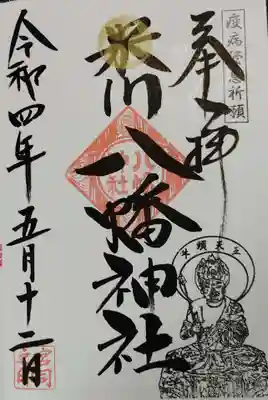 疫病終息祈願
奉拝
米川八幡神社
牛頭天王
令和四年五月十二日